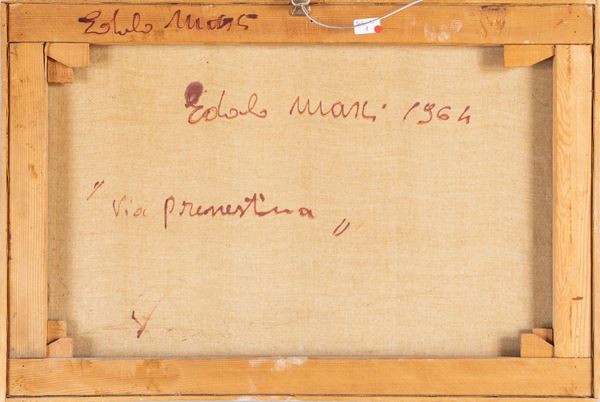 Edolo Masci
Edolo Masci 1964
" Via Prenestina "